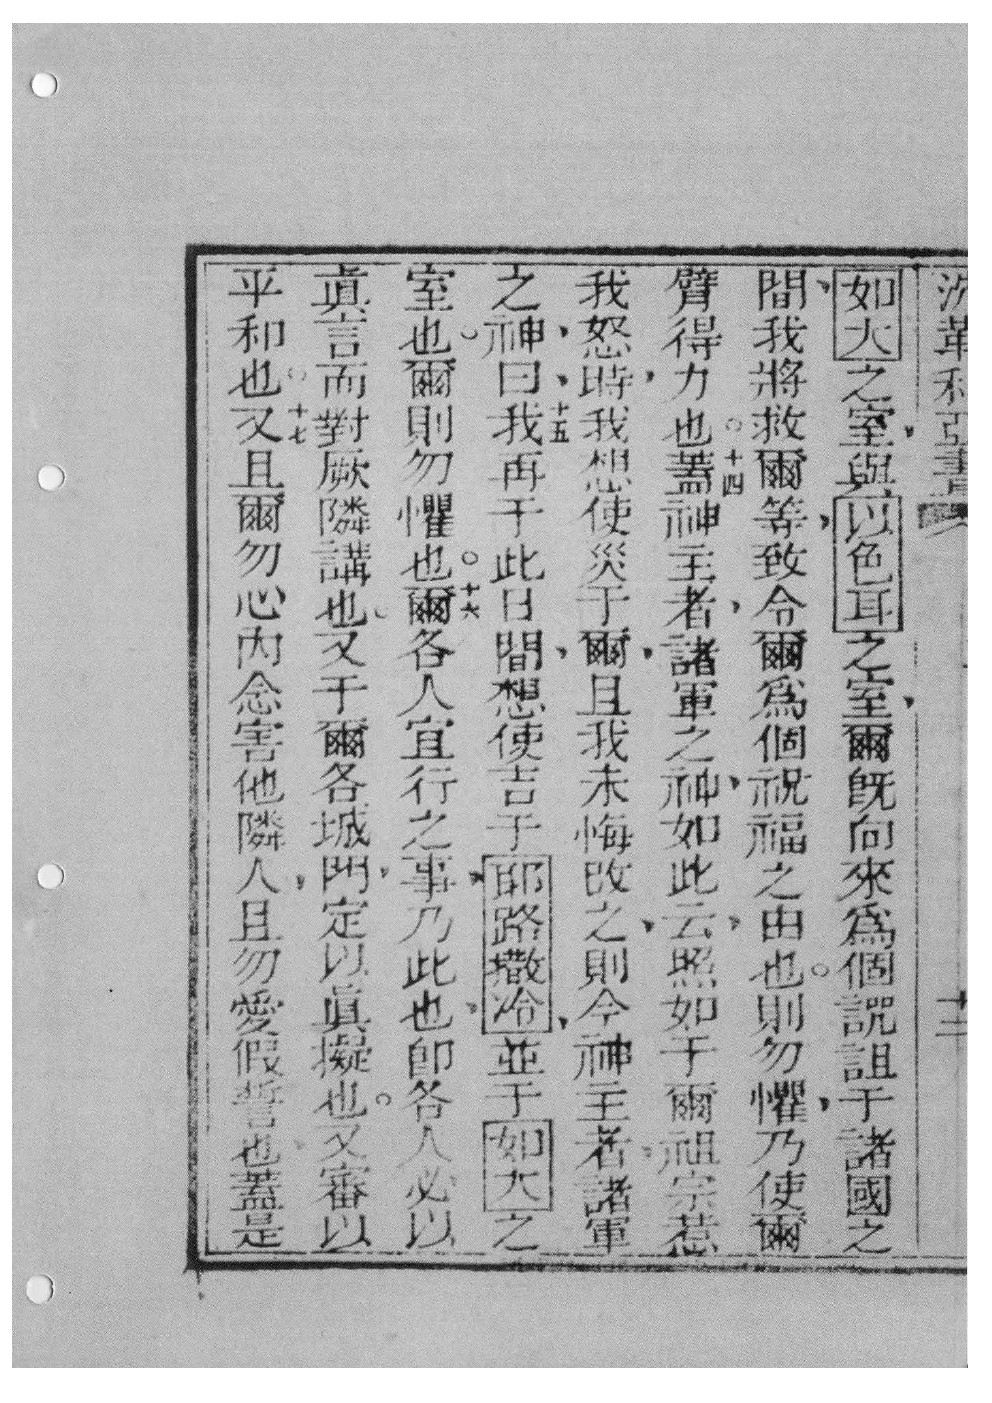 革利亞書
如大之室與以色耳之室爾既向來爲個詋詛于諸國之
間我將救爾等致令爾爲個祝福之由也則勿懼乃使爾
臂得力也十四蓋神主者諸軍之神如此云照如于爾祖宗惹
我怒時我想使災于爾且我未悔改之則今神主者諸軍
之神曰十五我再于此日間想使吉于耶路撒冷並于如大之
室也爾則勿懼也十六爾各人宜行之事乃此也卽各人必以
眞言而對厥隣講也又于爾各城門定以眞擬也又審以
平和也十七又且爾勿心內念害他隣人且勿愛假誓也蓋是